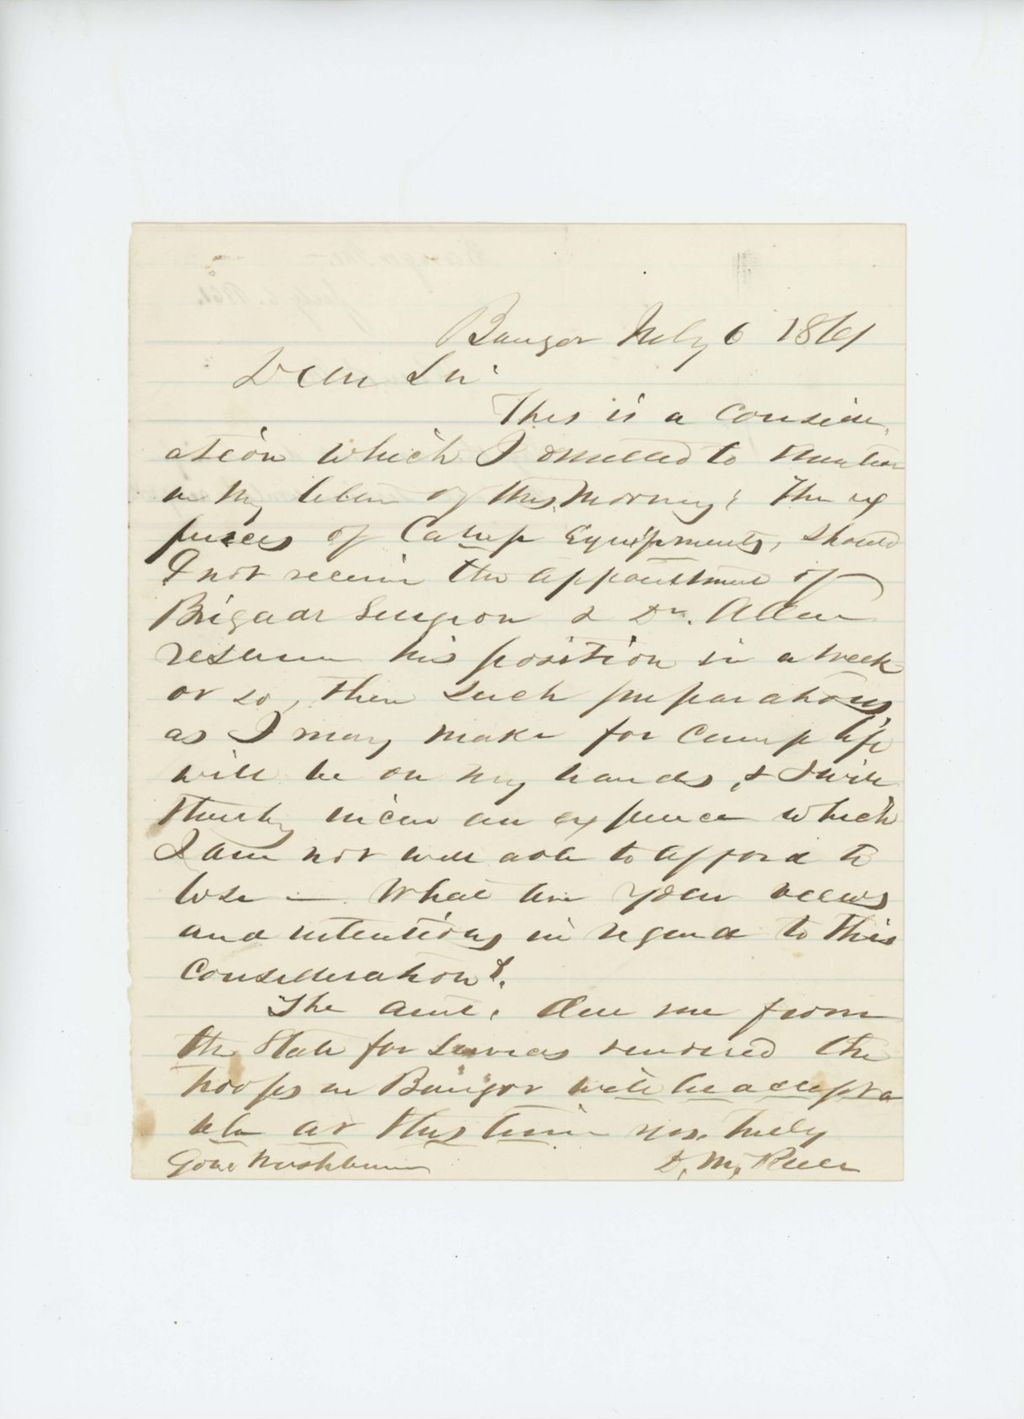 Bangor July 6 1861
Dear Sir
This is a consider
ation which I omitted to mention
in my letter of this morning; The ex
penses of Camp Equipments, should
I not receive the appointment of
Brigade Surgeon & Dr. Allen
resume his position in a week
or so, then such preparations
as I may make for camp life
will be on my hands, & I will
thereby incur an expence which
I am not well able to afford to
lose — What are your views
and intentions in regard to this
consideration?.
The amt. due me from
the State for services rendered the
troops in Bangor will be accepta
ble at this time yrs. truly
Gov. Washburn D. M.